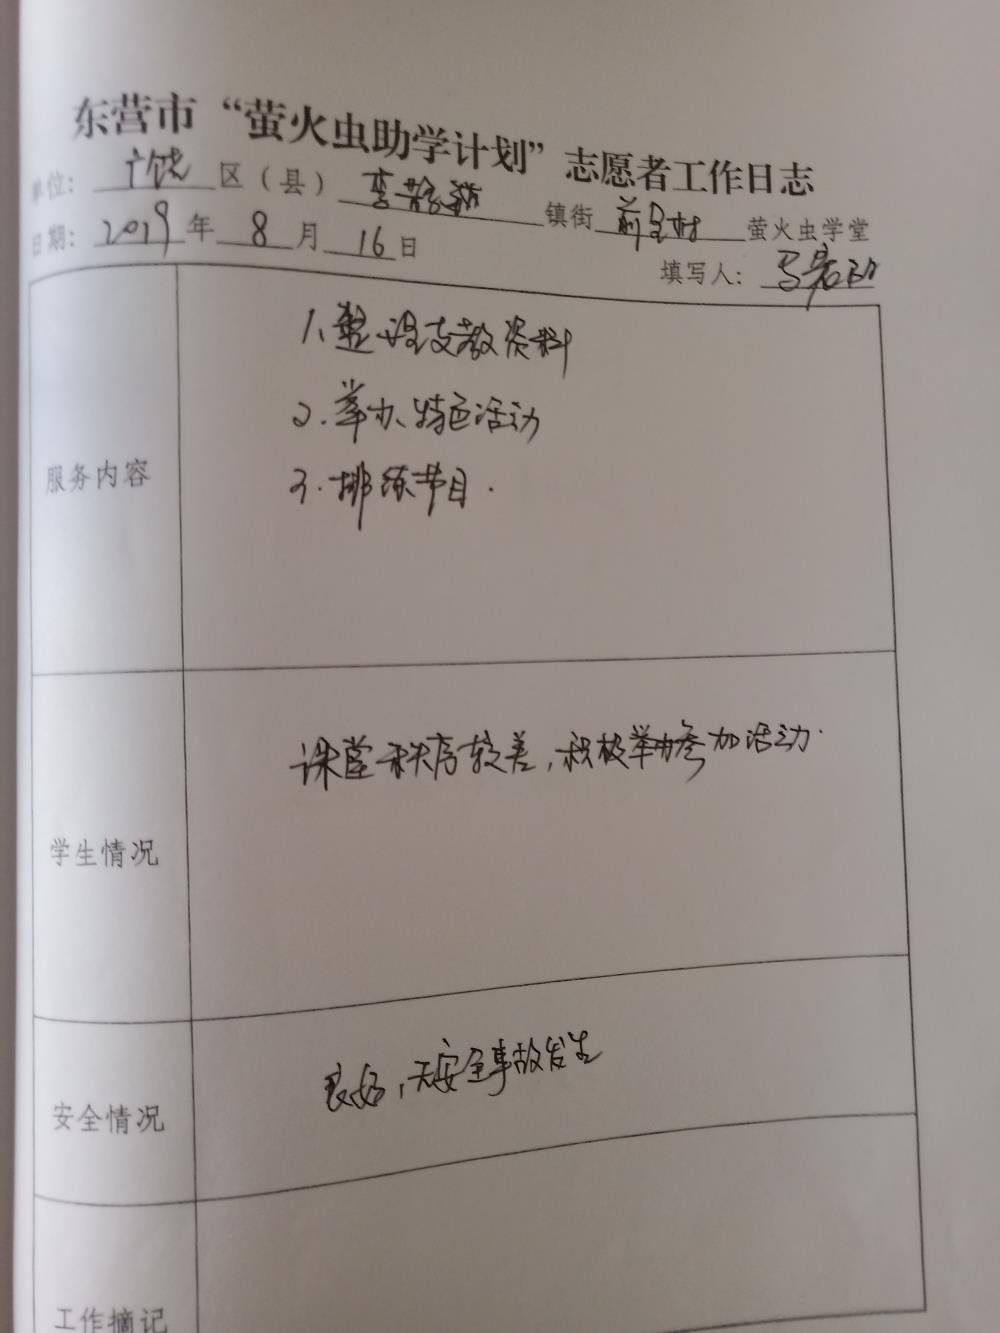 东营市“萤火虫助学计划”志愿者工作日志
单位：广饶区（县）李鹊镇街前屋村萤火虫学堂
日期：2019年8月16日
填写人：马
服务内容
1、整设支教资料
2.举办特色活动
3.排练节目.
学生情况
课堂秩序较差，积极举办参加活动.
安全情况
良好，无安全事故发生
工作摘记